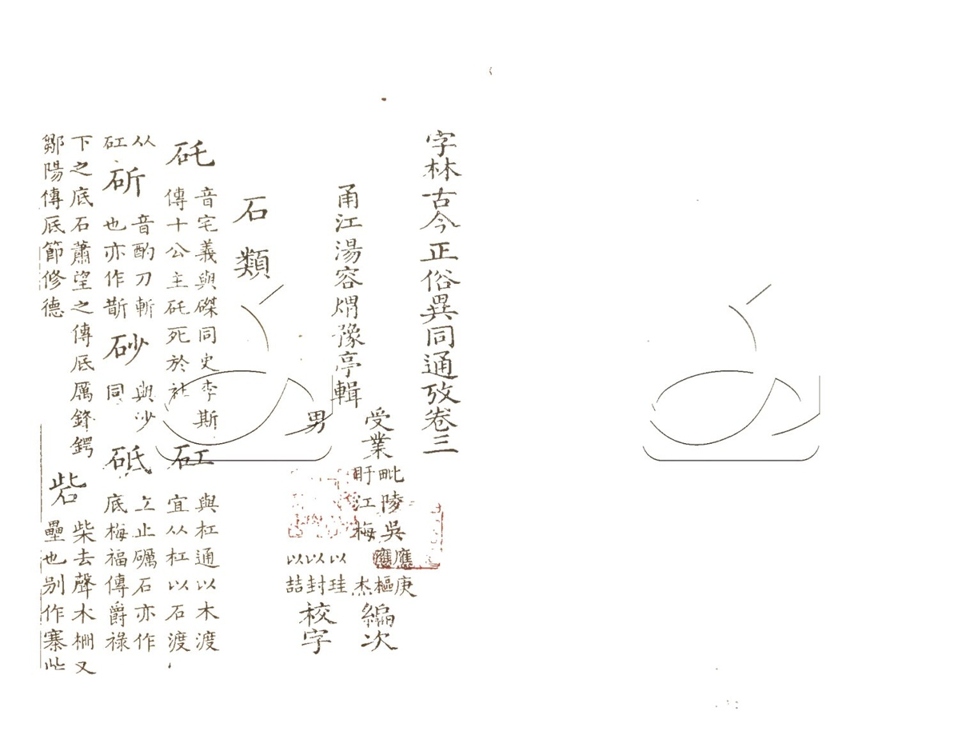 字林古今正俗異同通攷卷三
受業
毗陵吳
應庚
應樞
盱江梅杰
編次
甬江湯容煟豫亭輯
男
以珪
以封
以喆
校字
石類
砓
音宅義與磔同史李斯
傳十公主砓死於社
矼
與杠通以木渡
宜从杠以石渡
从
矼
斫
音酌刀斬
也亦作斮
砂
與沙
同
砥
止礪石亦作
底梅福傳爵祿
下之底石蕭望之傳厎厲鋒鍔
鄒陽傳厎節修德
砦
柴去聲木柵又
壘也别作寨